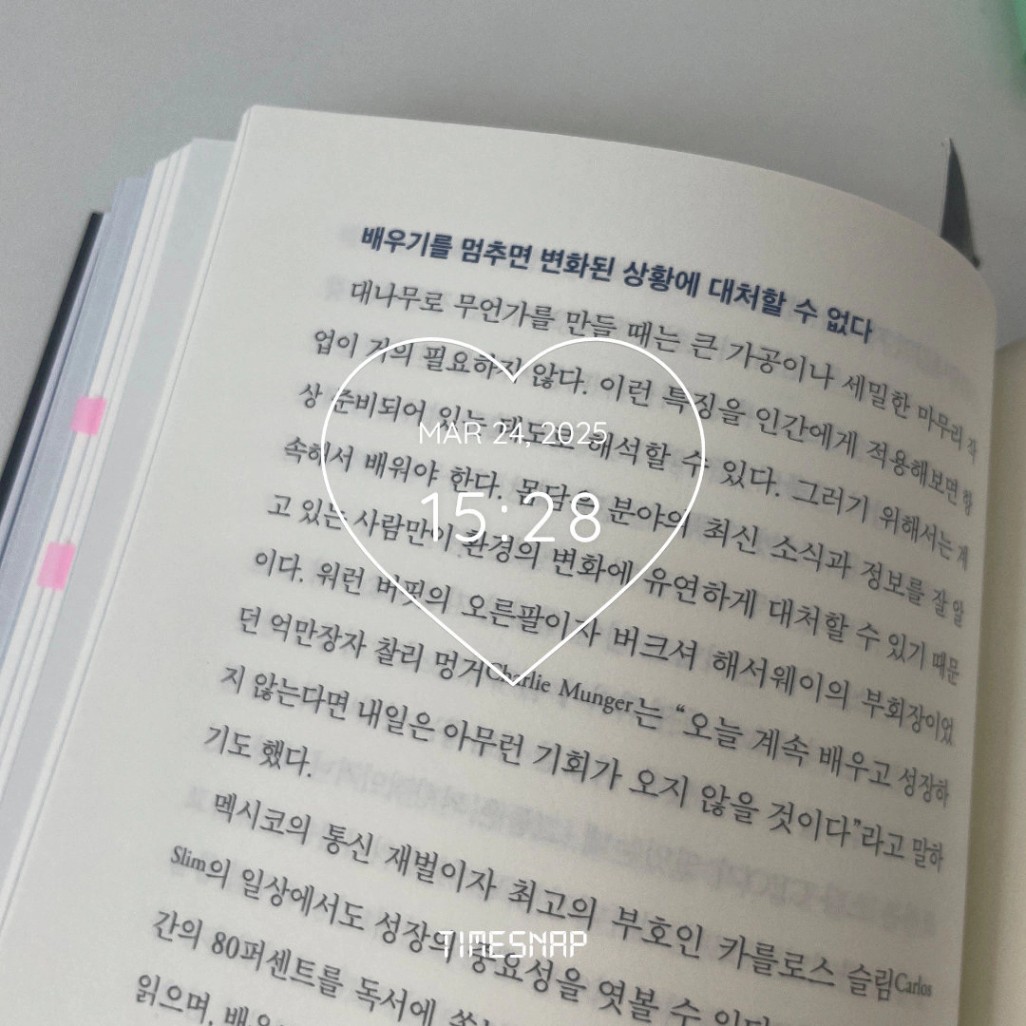 배우기를 멈추면 변화된 상황에 대처할 수 없다
대나무로 무언가를 만들 때는 큰 가공이나 세밀한 마무리 작
업이 거의 필요하지 않다. 이런 특징을 인간에게 적용해보면 항
상 준비되어 있는 태도로 해석할 수 있다. 그러기 위해서는 계
속해서 배워야 한다. 몸담은 분야의 최신 소식과 정보를 잘 알
고 있는 사람만이 환경의 변화에 유연하게 대처할 수 있기 때문
이다. 워런 버핏의 오른팔이자 버크셔 해서웨이의 부회장이었
던 억만장자 찰리 멍거Charlie Munger는 “오늘 계속 배우고 성장하
지 않는다면 내일은 아무런 기회가 오지 않을 것이다”라고 말하
기도 했다.
멕시코의 통신 재벌이자 최고의 부호인 카를로스 슬림Carlos
Slim의 일상에서도 성장의 중요성을 엿볼 수
간의 80퍼센트를 독서에
읽으며,
MAR 24, 2025
15:28
TIMESNAP